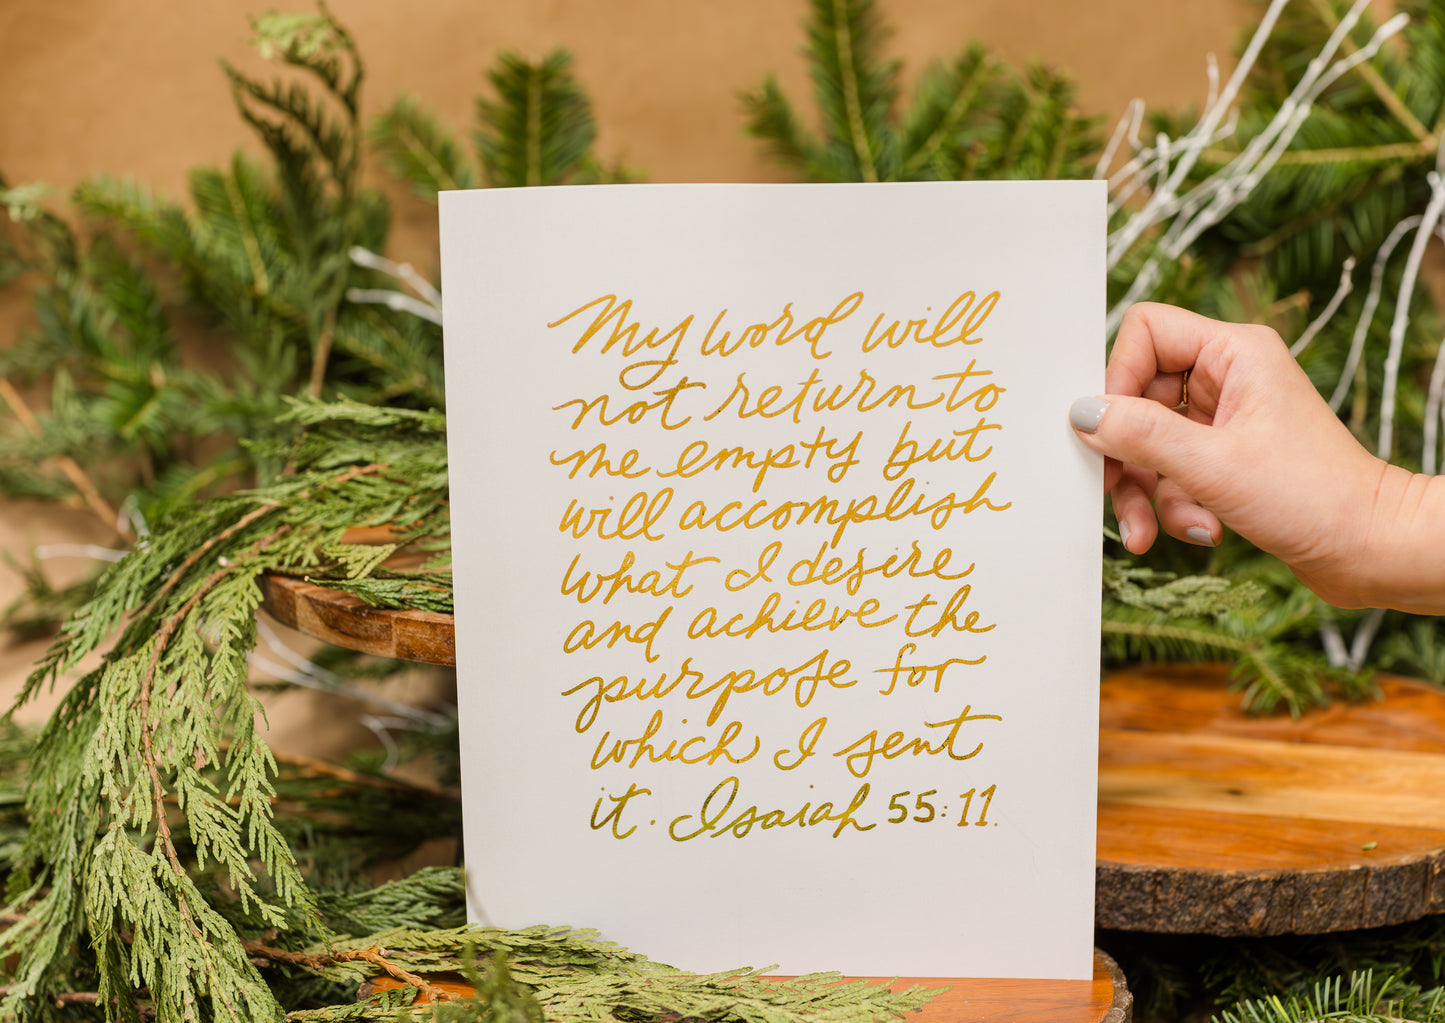 My word will
not return to
me empty but
will accomplish
what I desire
and achieve the
purpose for
which I sent
it. Isaiah 55:11.